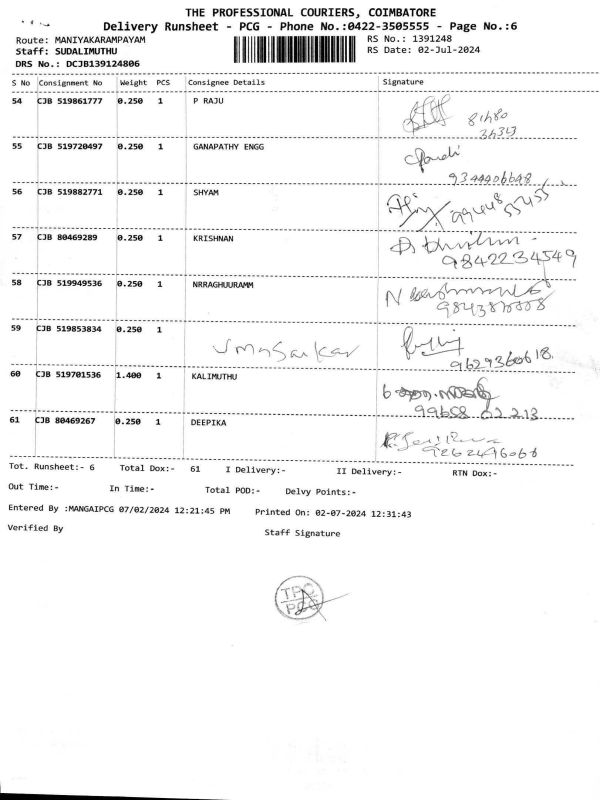 THE PROFESSIONAL COURIERS, COIMBATORE
Delivery Runsheet - PCG - Phone No.:0422-3505555 - Page No.:6
Route: MANIYAKARAMPAYAM RS No.: 1391248
Staff: SUDALIMUTHU RS Date: 02-Jul-2024
DRS No.: DCJB139124806
S No Consignment No Weight PCS Consignee Details Signature
54 CJB 519861777 0.250 1 P RAJU
55 CJB 519720497 0.250 1 GANAPATHY ENGG
9344406648
56 CJB 519882771 0.250 1 SHYAM
57 CJB 80469289 0.250 1 KRISHNAN
9842234549
58 CJB 519949536 0.250 1 NRRAGHUURAMM
59 CJB 519853834 0.250 1
UmaSankar
9629360618.
60 CJB 519701536 1.400 1 KALIMUTHU
99658 02213
61 CJB 80469267 0.250 1 DEEPIKA
Tot. Runsheet:- 6 Total Dox:- 61 I Delivery:- II Delivery:- RTN Dox:-
Out Time:- In Time:- Total POD:- Delvy Points:-
Entered By :MANGAIPCG 07/02/2024 12:21:45 PM Printed On: 02-07-2024 12:31:43
Verified By Staff Signature
TPC
PCG